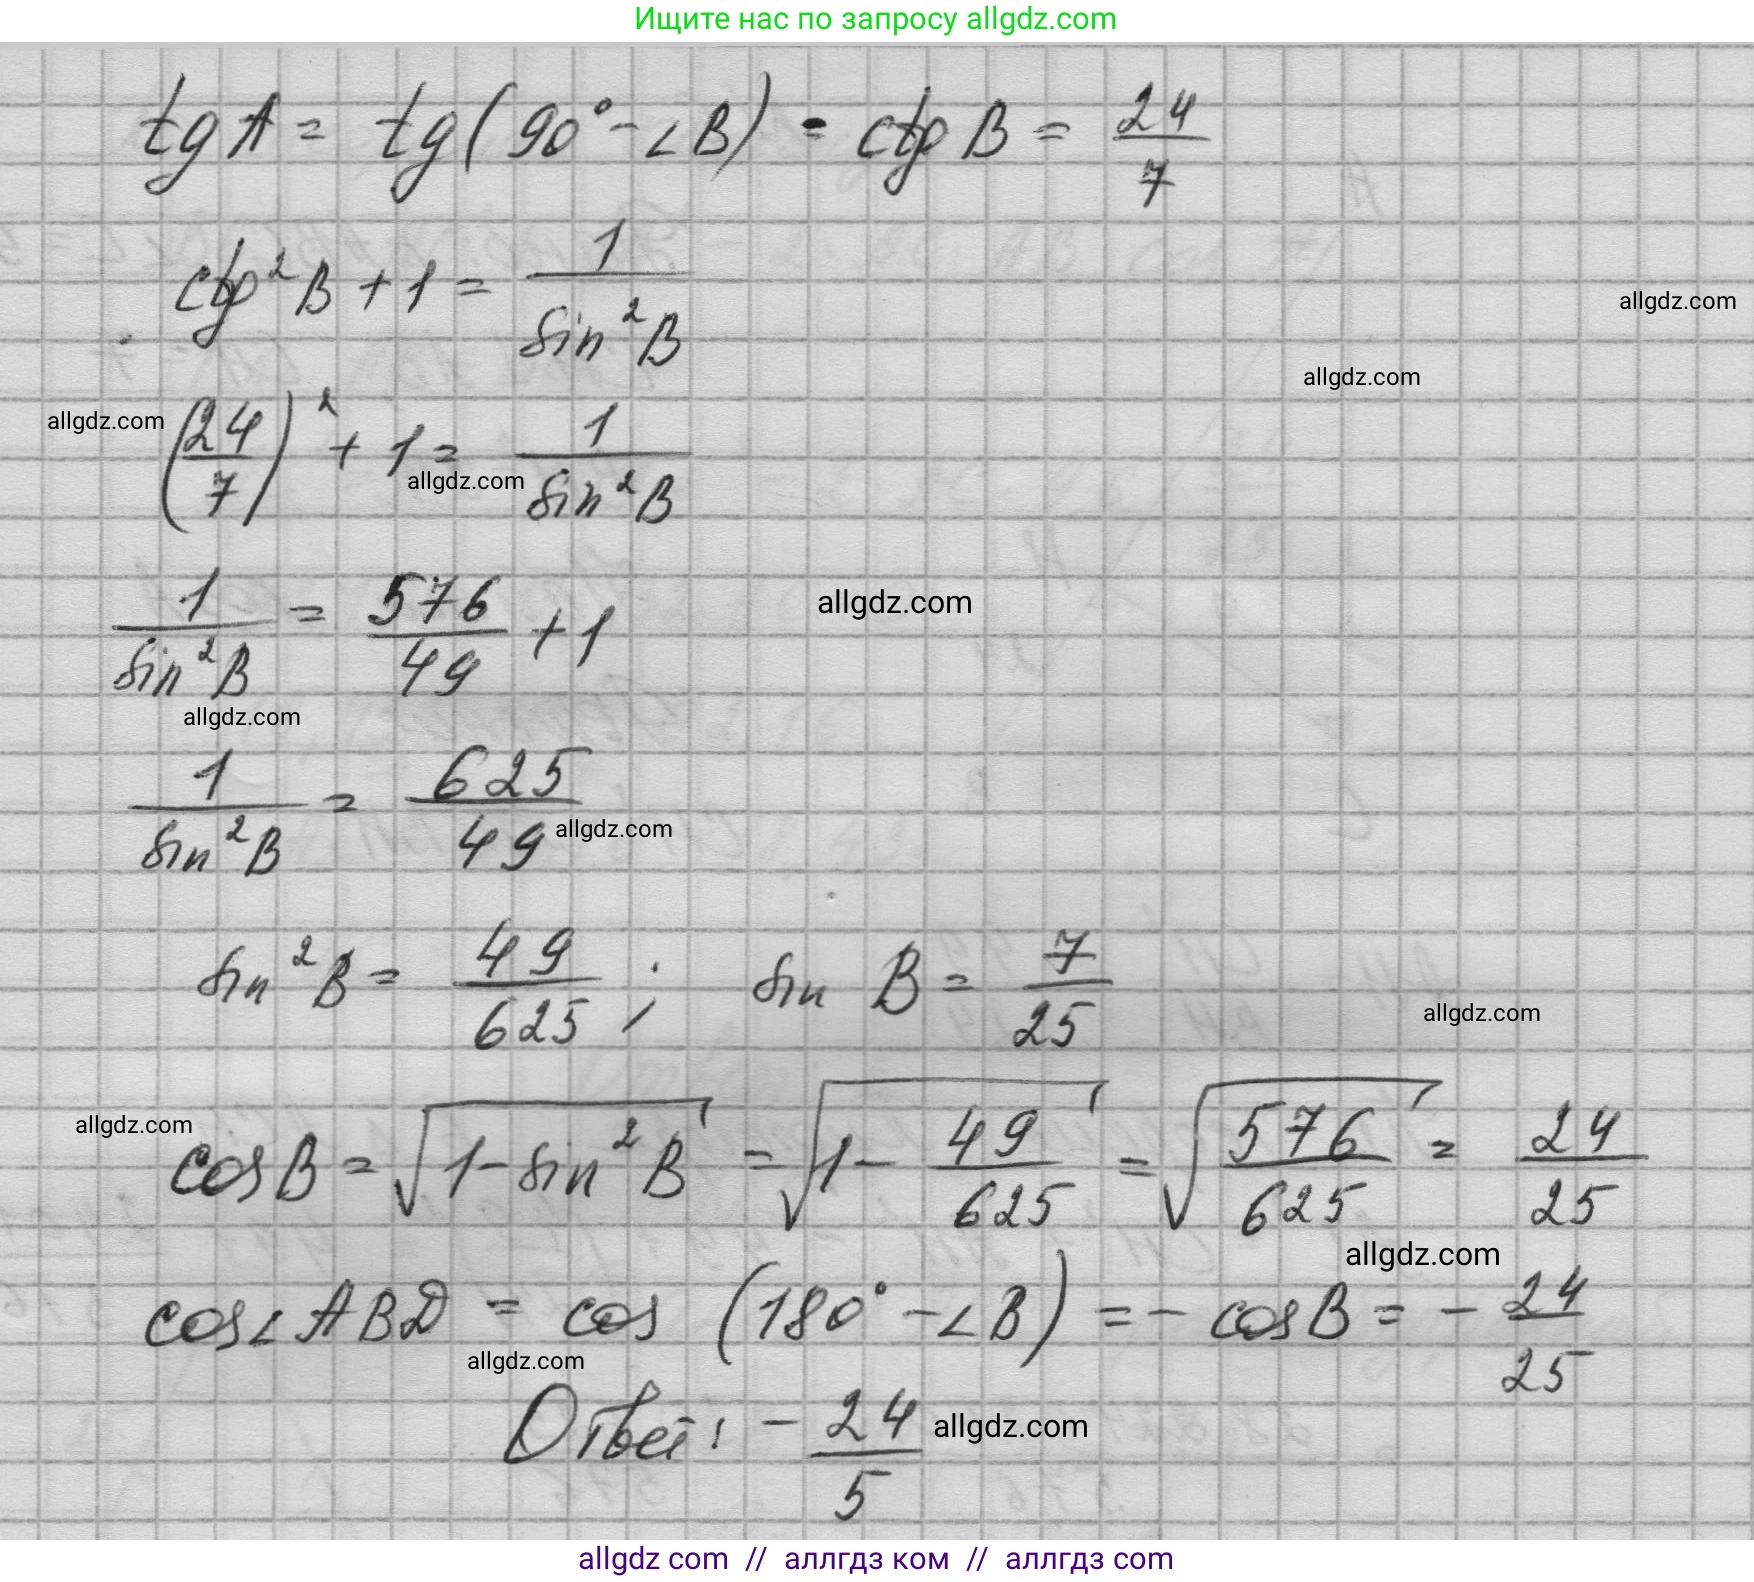 Ищите нас по запросу allgdz.com
tg A = tg(90° - ∠B) = ctg B = 24/7
ctg²B + 1 = 1/sin²B
allgdz.com
allgdz.com
allgdz.com
(24/7)² + 1 = 1/sin²B
allgdz.com
1/sin²B = 576/49 + 1
allgdz.com
allgdz.com
1/sin²B = 625/49
allgdz.com
sin²B = 49/625; sin B = 7/25
allgdz.com
allgdz.com
cos B = √(1 - sin²B) = √(1 - 49/625) = √(576/625) = 24/25
allgdz.com
cos∠ABD = cos (180° - ∠B) = - cos B = - 24/25
allgdz.com
Ответ: - 24/5
allgdz.com
allgdz com // аллгдз ком // аллгдз com